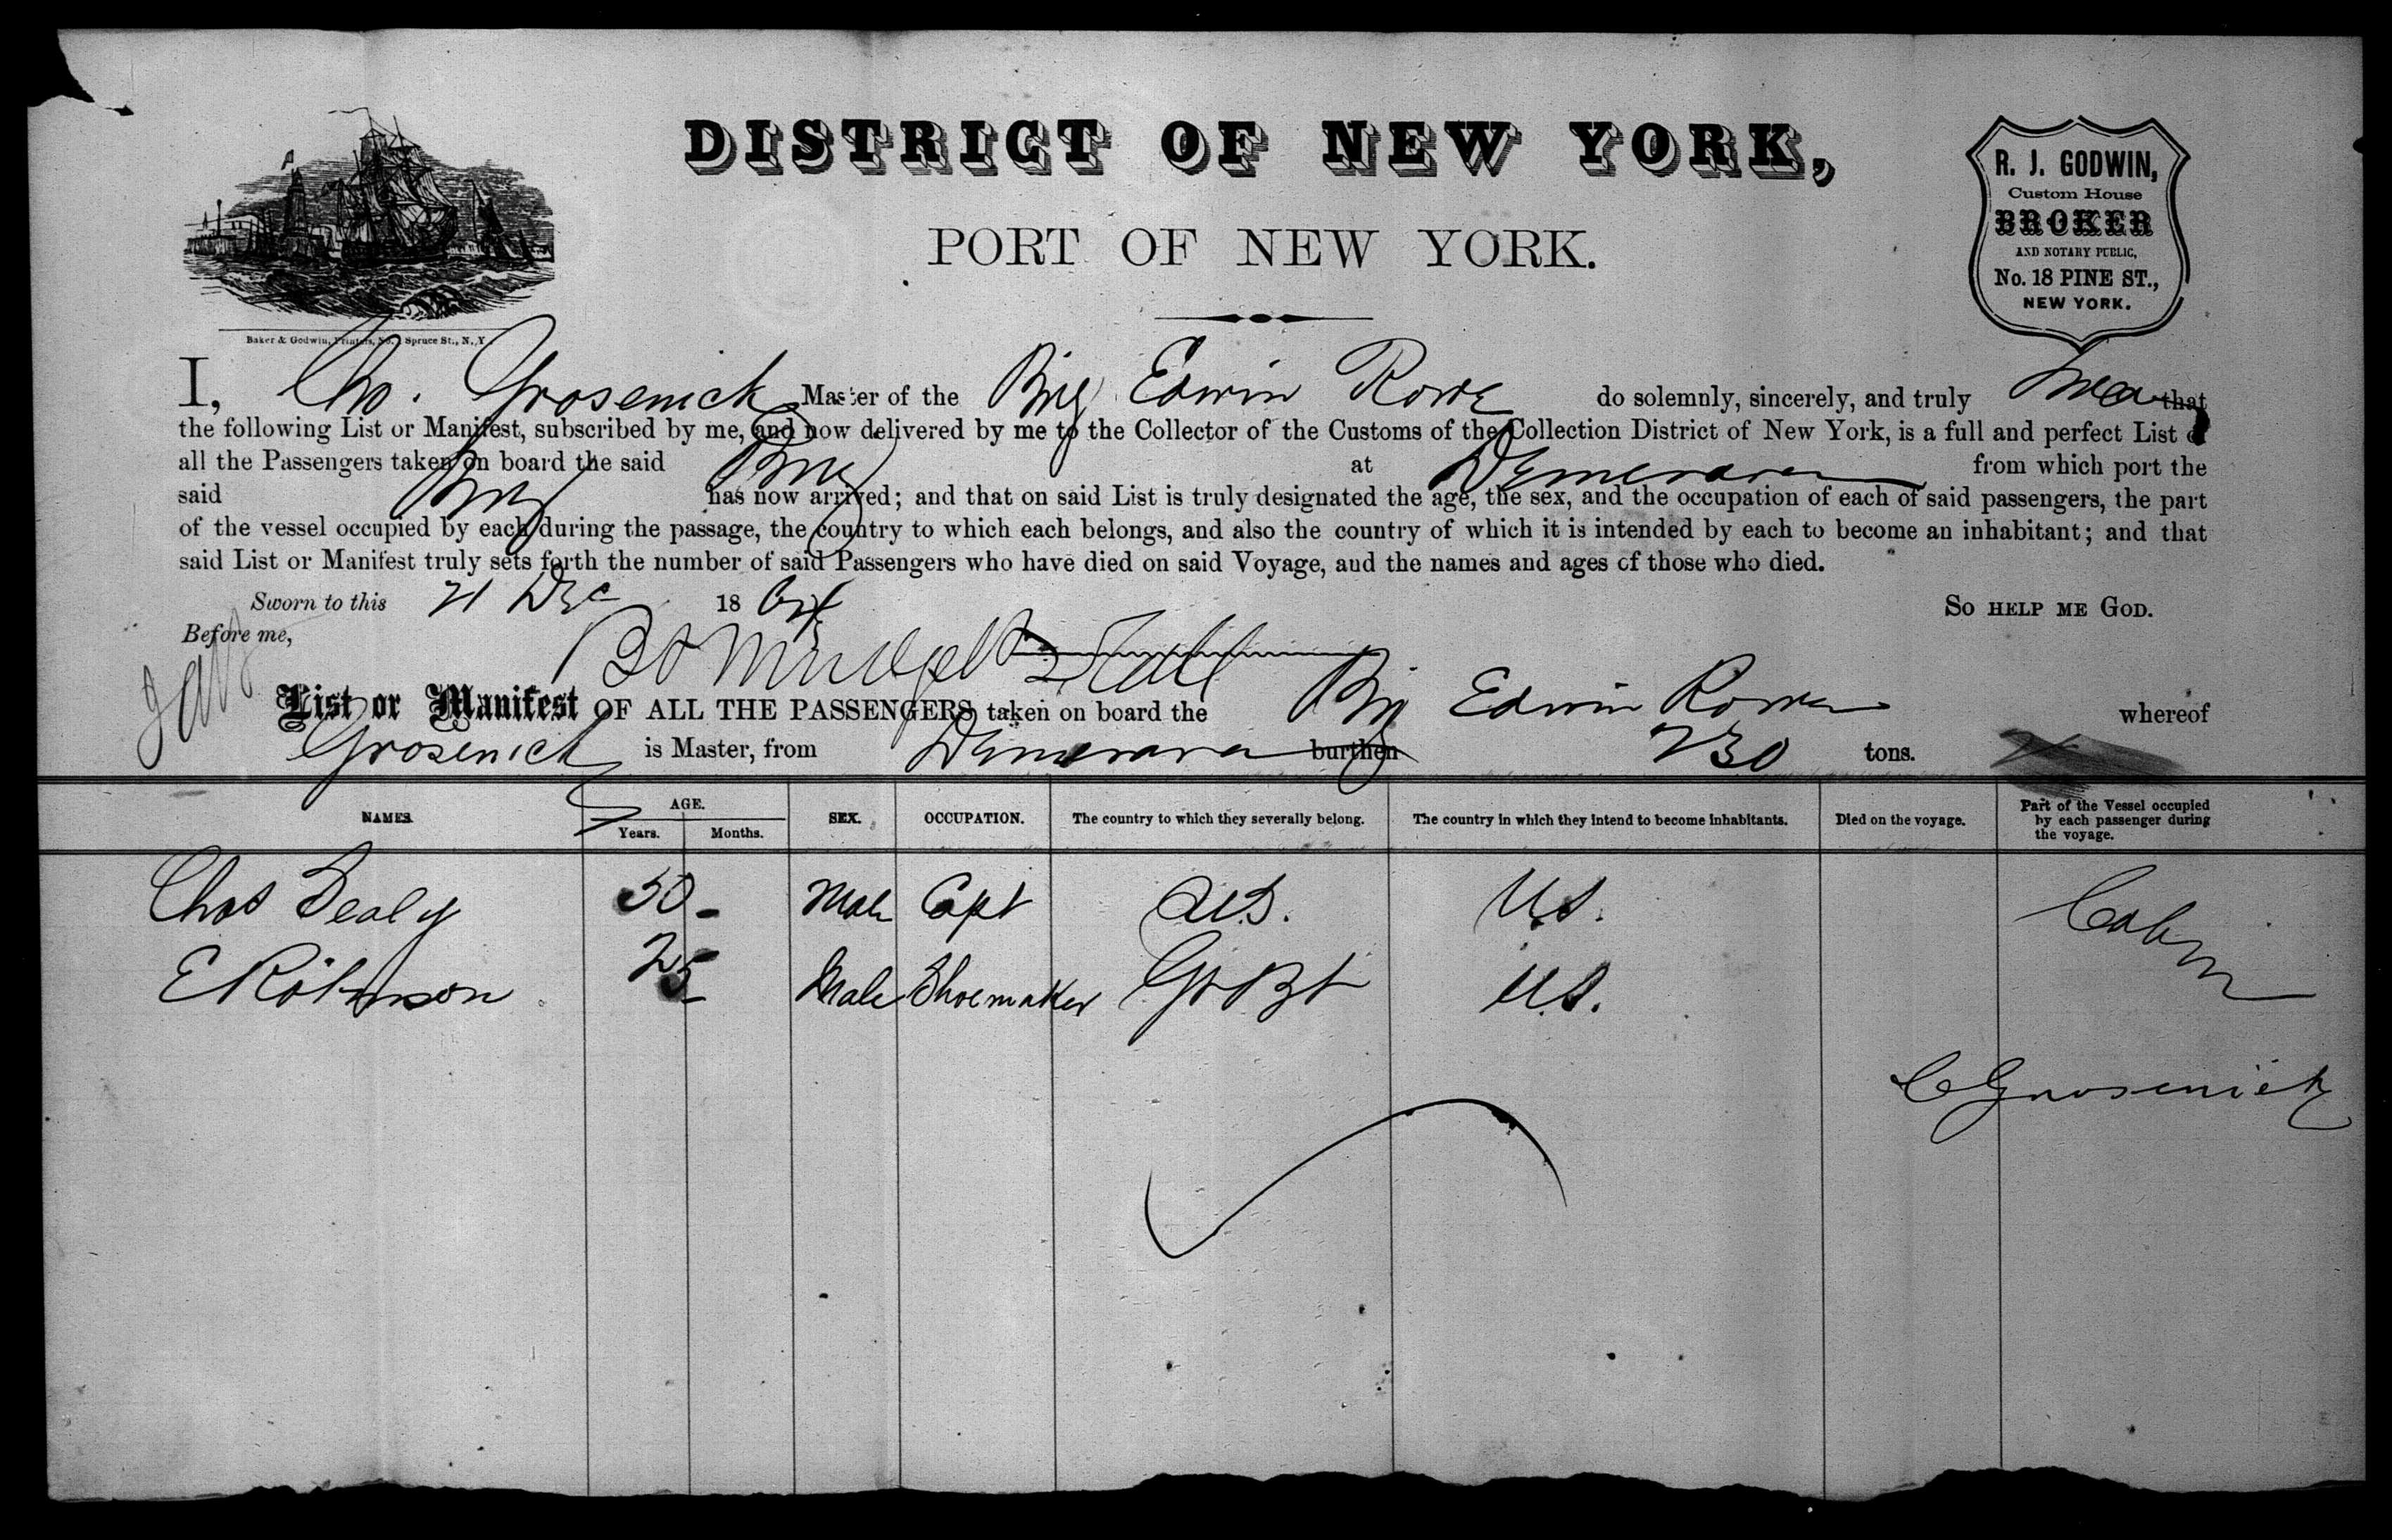 DISTRICT OF NEW YORK,
PORT OF NEW YORK.
R. J. GODWIN,
Custom House
BROKER
AND NOTARY PUBLIC,
No. 18 PINE ST.,
NEW YORK.
Baker & Godwin, Printers, No. 1 Spruce St., N. Y.
I, Chs. Grosenick Master of the Brig Edwin Rowe do solemnly, sincerely, and truly swear that
the following List or Manifest, subscribed by me, and now delivered by me to the Collector of the Customs of the Collection District of New York, is a full and perfect List of
all the Passengers taken on board the said Brig at Demerara from which port the
said Brig has now arrived; and that on said List is truly designated the age, the sex, and the occupation of each of said passengers, the part
of the vessel occupied by each during the passage, the country to which each belongs, and also the country of which it is intended by each to become an inhabitant; and that
said List or Manifest truly sets forth the number of said Passengers who have died on said Voyage, and the names and ages of those who died.
Sworn to this 21 Dec 18 SO HELP ME GOD.
Before me,
List or Manifest OF ALL THE PASSENGERS taken on board the Brig Edwin Rowe whereof
Grosenick is Master, from Demerara burthen 230 tons.
NAMES. AGE. Years. Months. SEX. OCCUPATION. The country to which they severally belong. The country in which they intend to become inhabitants. Died on the voyage. Part of the Vessel occupied by each passenger during the voyage.
Chas Sealy 50 - Male Capt U.S. U.S. Cabin
E Robinson 25 - Male Shoemaker Gt Bt U.S.
C Grosenick